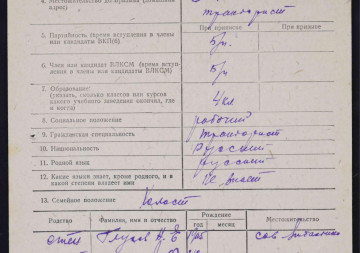 адрес)
тракторист
При приписке
При призыве
5. Партийность (время вступления в члены
или кандидаты ВКП(б)
б/п.
6. Член или кандидат ВЛКСМ (время всту-
пления в члены или кандидаты ВЛКСМ)
б/п
7. Образование:
(указать, сколько классов или курсов
какого учебного заведения окончил, где
и когда)
4 кл
8. Социальное положение
рабочий
9. Гражданская специальность
тракторист
10. Национальность
Русский
11. Родной язык
русский
12. Какие языки знает, кроме родного, и в
какой степени владеет ими
Не знает
13. Семейное положение
Холост
Родство
Фамилия, имя и отчество
Рождение
год
месяц
Местожительство
отец